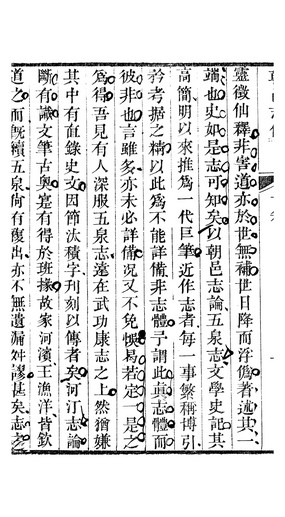 靈徵仙釋非害道亦於世無補世日降而浮僞著述其一
端也史如是志可知矣以朝邑志論五泉志文學史記其
高簡明以來推爲一代巨筆近作志者每一事繁稱博引
矜考据之精以此爲不能詳備非志體予謂此眞志體而
彼非也言雖多亦未必詳備况又不免 易若定一是之
爲得吾見有人深服五泉志遠在武功康志之上然猶嫌
其中有直錄史文因節汰積字刋刻以傳者矣河汀志論
斷有識文筆古奥嘉有得於班掾故家河濱王漁洋皆欽
道之而旣續五泉何有復出亦不無遺漏舛謬甚矣志之